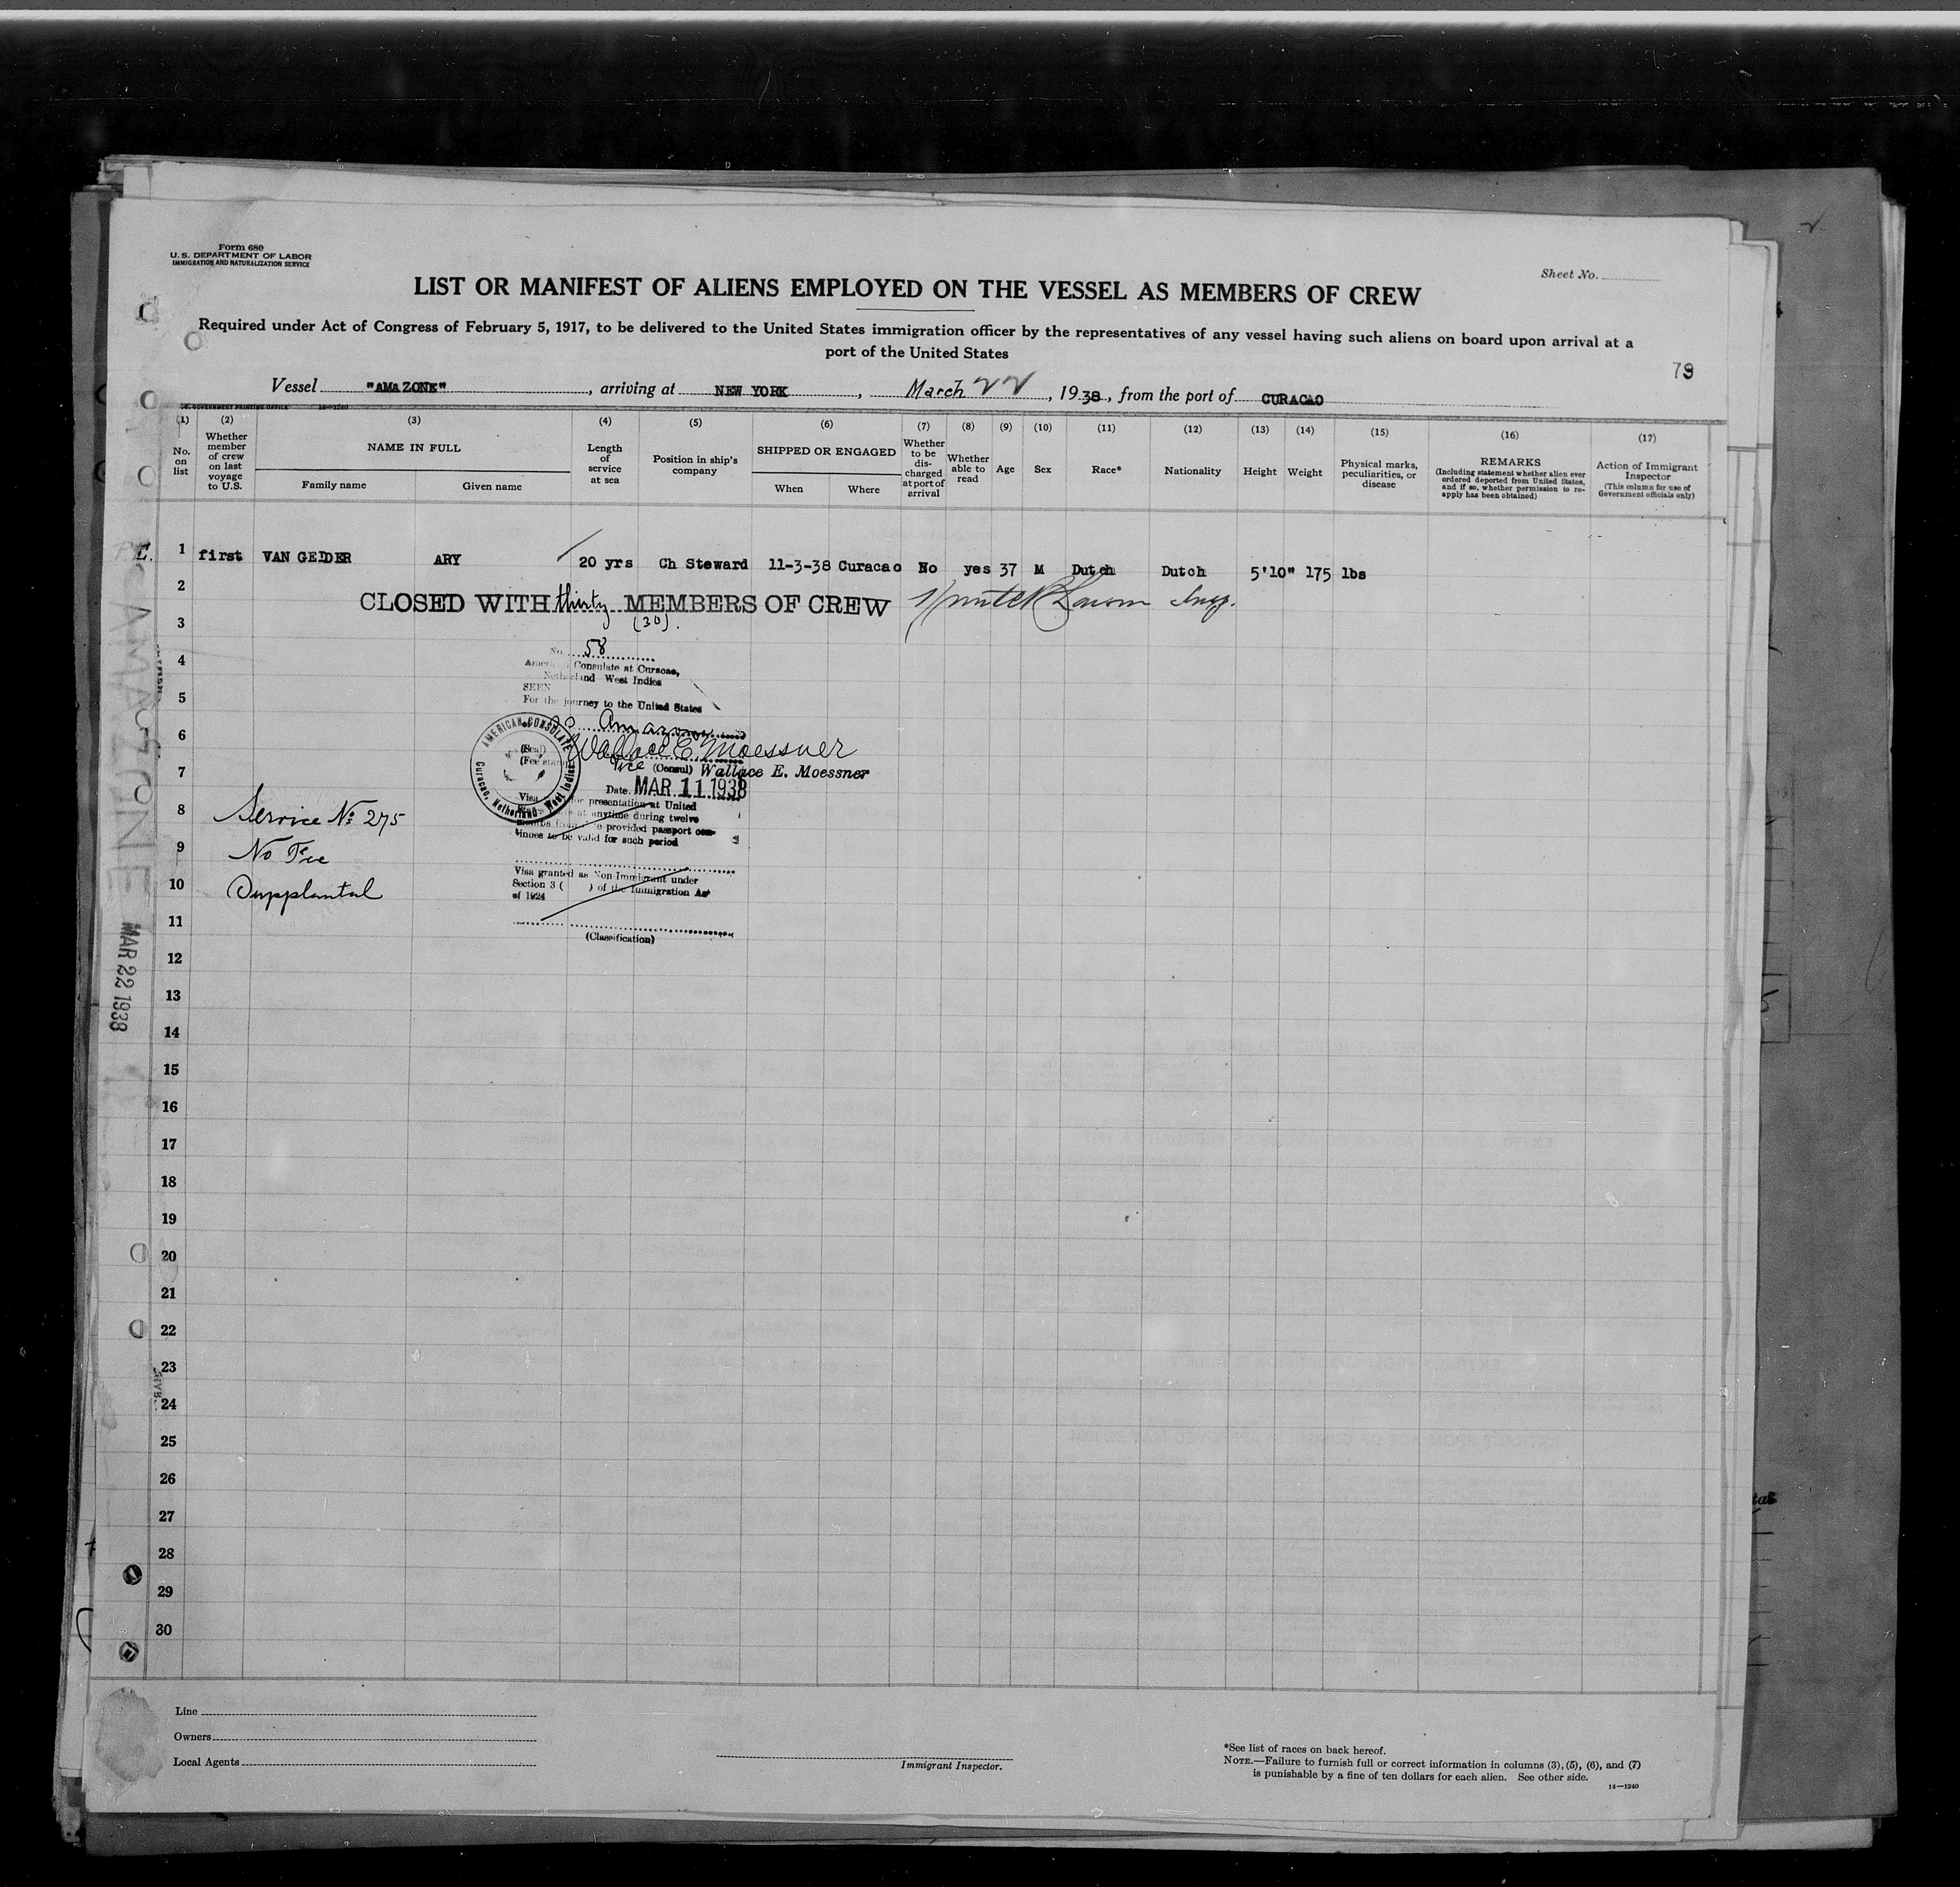 Form 680
U. S. DEPARTMENT OF LABOR
IMMIGRATION AND NATURALIZATION SERVICE
Sheet No.
LIST OR MANIFEST OF ALIENS EMPLOYED ON THE VESSEL AS MEMBERS OF CREW
Required under Act of Congress of February 5, 1917, to be delivered to the United States immigration officer by the representatives of any vessel having such aliens on board upon arrival at a
port of the United States
79
Vessel "AMAZONE", arriving at NEW YORK, March 22, 1938, from the port of CURACAO
U.S. GOVERNMENT PRINTING OFFICE 14—1240
(1) No. on list
(2) Whether member of crew on last voyage to U.S.
(3) NAME IN FULL
Family name
Given name
(4) Length of service at sea
(5) Position in ship's company
(6) SHIPPED OR ENGAGED
When
Where
(7) Whether to be discharged at port of arrival
(8) Whether able to read
(9) Age
(10) Sex
(11) Race*
(12) Nationality
(13) Height
(14) Weight
(15) Physical marks, peculiarities, or disease
(16) REMARKS
(Including statement whether alien ever ordered deported from United States, and if so, whether permission to reapply has been obtained)
(17) Action of Immigrant Inspector
(This column for use of Government officials only)
1 first VAN GELDER ARY 20 yrs Ch Steward 11-3-38 Curacao No yes 37 M Dutch Dutch 5'10" 175 lbs
2
CLOSED WITH thirty MEMBERS OF CREW Insp.
3
(30).
No. 58
4
American Consulate at Curacao,
Netherland West Indies
SEEN
5
For the journey to the United States
6
SS Amazone
AMERICAN CONSULATE
Curacao, Netherland West Indies
(Seal)
(Fee stamp)
Wallace E. Moessner
7
Vice (Consul) Wallace E. Moessner
Date MAR 11 1938
8
Visa for presentation at United
at anytime during twelve
months from provided passport con-
tinues to be valid for such period
Service No. 275
9
No Fee
Visa granted as Non-Immigrant under
10
Section 3 ( ) of the Immigration Act
of 1924
Supplantal
11
(Classification)
AMAZONE
MAR 22 1938
12
13
14
15
16
17
18
19
20
21
22
23
24
25
26
27
28
29
30
Line
Owners
Local Agents
Immigrant Inspector.
*See list of races on back hereof.
NOTE.—Failure to furnish full or correct information in columns (3), (5), (6), and (7)
is punishable by a fine of ten dollars for each alien. See other side.
14—1240